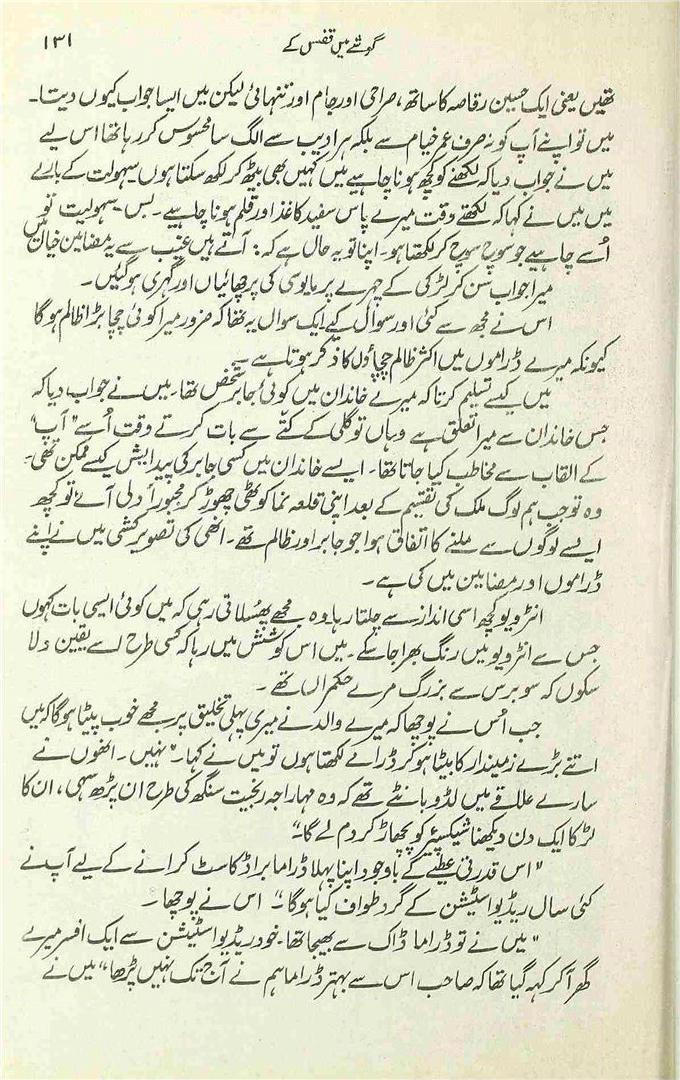 گوشے میں قفس کے
۱۳۱
تھیں یعنی ایک حسین رقاصہ کا ساتھ، صراحی اور جام اور تنہائی لیکن میں ایسا جواب کیوں دیتا۔
میں تو اپنے آپ کو نہ صرف عمر خیام سے بلکہ ہر ادیب سے الگ سا محسوس کر رہا تھا اس لیے
میں نے جواب دیا کہ لکھنے کو کچھ ہونا چاہیے میں کہیں بھی بیٹھ کر لکھ سکتا ہوں سہولت کے بارے
میں میں نے کہا کہ لکھتے وقت میرے پاس سفید کاغذ اور قلم ہونا چاہیے۔ بس۔ سہولیت تو
اُسے چاہیے جو سوچ سوچ کر لکھتا ہو۔ اپنا تو یہ حال ہے کہ: آتے ہیں غیب سے یہ مضامین خیال میں
میرا جواب سن کر لڑکی کے چہرے پر مایوسی کی پرچھائیاں اور گہری ہو گئیں۔
اس نے مجھ سے کئی اور سوال کیے ایک سوال یہ تھا کہ ضرور میرا کوئی چچا بڑا ظالم ہو گا
کیونکہ میرے ڈراموں میں اکثر ظالم چچاؤں کا ذکر ہوتا ہے۔
میں کیسے تسلیم کرتا کہ میرے خاندان میں کوئی جابر شخص تھا۔ میں نے جواب دیا کہ
جس خاندان سے میرا تعلق ہے وہاں تو گلی کے کتّے سے بات کرتے وقت اُسے "آپ"
کے القاب سے مخاطب کیا جاتا تھا۔ ایسے خاندان میں کسی جابر کی پیدایش کیسے ممکن تھی۔
وہ تو جب ہم لوگ ملک کی تقسیم کے بعد اپنی قلعہ نما کوٹھی چھوڑ کر مجبوراً دلی آئے تو کچھ
ایسے لوگوں سے ملنے کا اتفاق ہوا جو جابر اور ظالم تھے۔ انھی کی تصویر کشی میں نے اپنے
ڈراموں اور مضامین میں کی ہے۔
انٹرویو کچھ اسی انداز سے چلتا رہا۔ وہ مجھے پھسلاتی رہی کہ میں کوئی ایسی بات کہوں
جس سے انٹرویو میں رنگ بھرا جا سکے۔ میں اس کوشش میں رہا کہ کسی طرح اسے یقین دلا
سکوں کہ سو برس سے بزرگ مرے حکمراں تھے۔
جب اُس نے پوچھا کہ میرے والد نے میری پہلی تخلیق پر مجھے خوب پیٹا ہو گا کہ میں
اتنے بڑے زمیندار کا بیٹا ہو کر ڈرامے لکھتا ہوں تو میں نے کہا۔ "نہیں۔ انھوں نے
سارے علاقے میں لڈو بانٹے تھے کہ وہ مہاراجہ رنجیت سنگھ کی طرح ان پڑھ سہی، ان کا
لڑکا ایک دن دیکھنا شیکسپیئر کو پچھاڑ کر دم لے گا۔"
"اس قدرتی عطیے کے باوجود اپنا پہلا ڈراما براڈ کاسٹ کرانے کے لیے آپ نے
کئی سال ریڈیو اسٹیشن کے گرد طواف کیا ہو گا۔" اس نے پوچھا۔
"میں نے تو ڈراما ڈاک سے بھیجا تھا۔ خود ریڈیو اسٹیشن سے ایک افسر میرے
گھر آ کر کہہ گیا تھا کہ صاحب اس سے بہتر ڈراما ہم نے آج تک نہیں پڑھا" میں نے